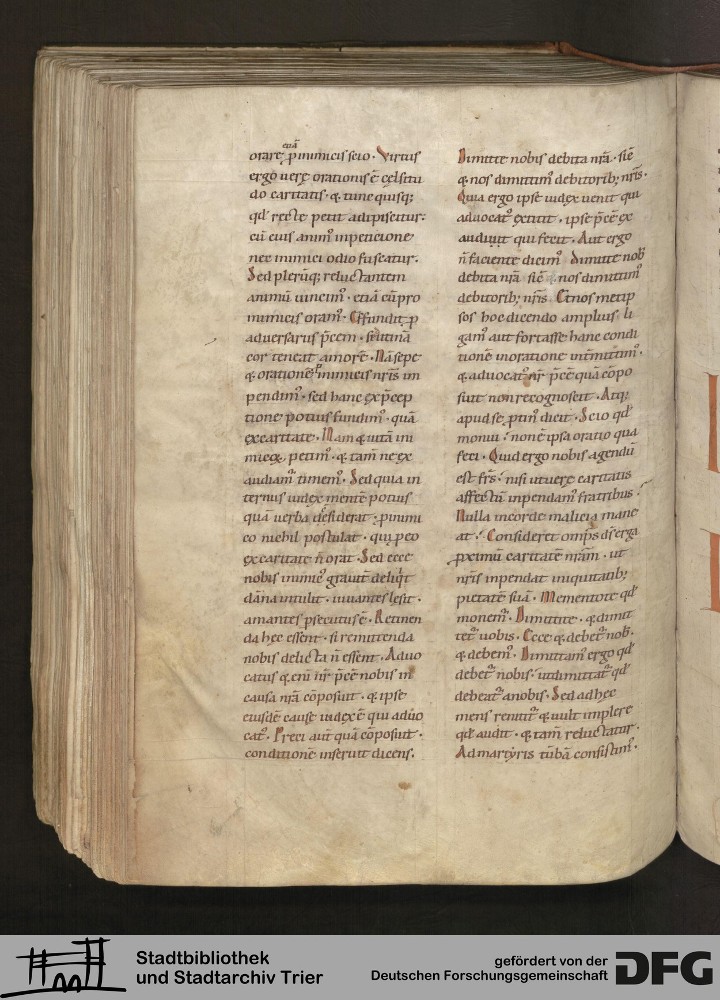 etiā
orare, p̄ inimicis scio. Virtus
ergo verę orationis ē cęlsitu
do caritatis. & tunc quisq;
qd̄ recte petit adipiscitur:
cū eius anim᷒ in peticione
nec inimici odio fuscatur.
Sed plerūq; reluctantem
animū vincim᷒. etiā cū pro
inimicis oram᷒. Effundit p
adversariis p̄cem. s; utinā
cor teneat amorē. Nā sepe
& orationē p inimicis nr̄is im
pendim᷒. sed hanc ex p̄cep
tione potius fundim᷒. quā
ex caritate. Nam & uitā ini
micoꝝ petim᷒. & tam̄ ne ex
audiam᷒ timem᷒. Sed quia in
ternus iudex mentē potius
quā verba cōsiderat. p inimi
co nichil postulat. qui p eo
ex caritate n̄ orat. Sed ecce
nobis inimic᷒ graviť deliq̄t
dāna intulit. iuuantes lesit.
amantes psecutus ē. Retinen
da hec essent. si remittenda
nobis delicta n̄ essent. Aduo
catus &enī nr̄ p̄cē nobis in
causa nr̄a cōposuit. & ipse
eiusdē cause iudex ē qui aduo
cat᷒. Preci aut̄ quā cōposuit.
conditionē inseruit dicens.
Dimitte nobis debita nr̄a. sic̄
& nos dimittim᷒ debitorib; nr̄is.
Quia ergo ipse iudex uenit qui
aduocat᷒ extitit. ipse p̄cē ex
audiuit qui fecit. Aut ergo
n̄ facientē dicim᷒. dimitte nob̄
debita nr̄a sic̄ & nos dimittim᷒
debitorib; nr̄is. Et nosmetip
sos hoc dicendo amplius li
gam᷒ aut fortasse hanc condi
tionē in oratione intmittim᷒.
& aduocat᷒ nr̄ p̄cē quā cōpo
suit non recognoscit. Atq;
apud se ptin᷒ dicit. Scio qd̄
monui. non ē ipsa oratio quā
feci. Quid ergo nobis agendū
est fr̄s. nisi ut uerę caritatis
affectū inpendam᷒ fratribus.
Nulla in corde malicia mane
at. Consideret omp̄s ds̄ erga
pximū caritatē nr̄am. ut
nr̄is inpendat iniquitatib;
pietatē suā. Mementote qd̄
monem᷒. Dimittite. & dimit
tet᷑ uobis. Ecce & debet᷑ nob̄.
& debem᷒. Dimittam᷒ ergo qd̄
debet᷑ nobis. ut dimittat᷑ qd̄
debeat᷑ a nobis. Sed ad hec
mens renitit᷑ & uult implere
qd̄ audit. & tam̄ reluctatur.
Ad martyris tūbā consistim᷒.
Stadtbibliothek
und Stadtarchiv Trier
gefördert von der
Deutschen Forschungsgemeinschaft
DFG